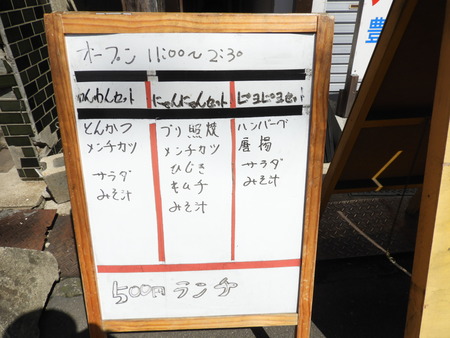 オープン 11:00〜2:30
わんわんセット
とんかつ
メンチカツ
サラダ
みそ汁
にゃんにゃんセット
ブリ照焼
メンチカツ
ひじき
キムチ
みそ汁
ピヨピヨセット
ハンバーグ
唐揚
サラダ
みそ汁
500円ランチ
豊